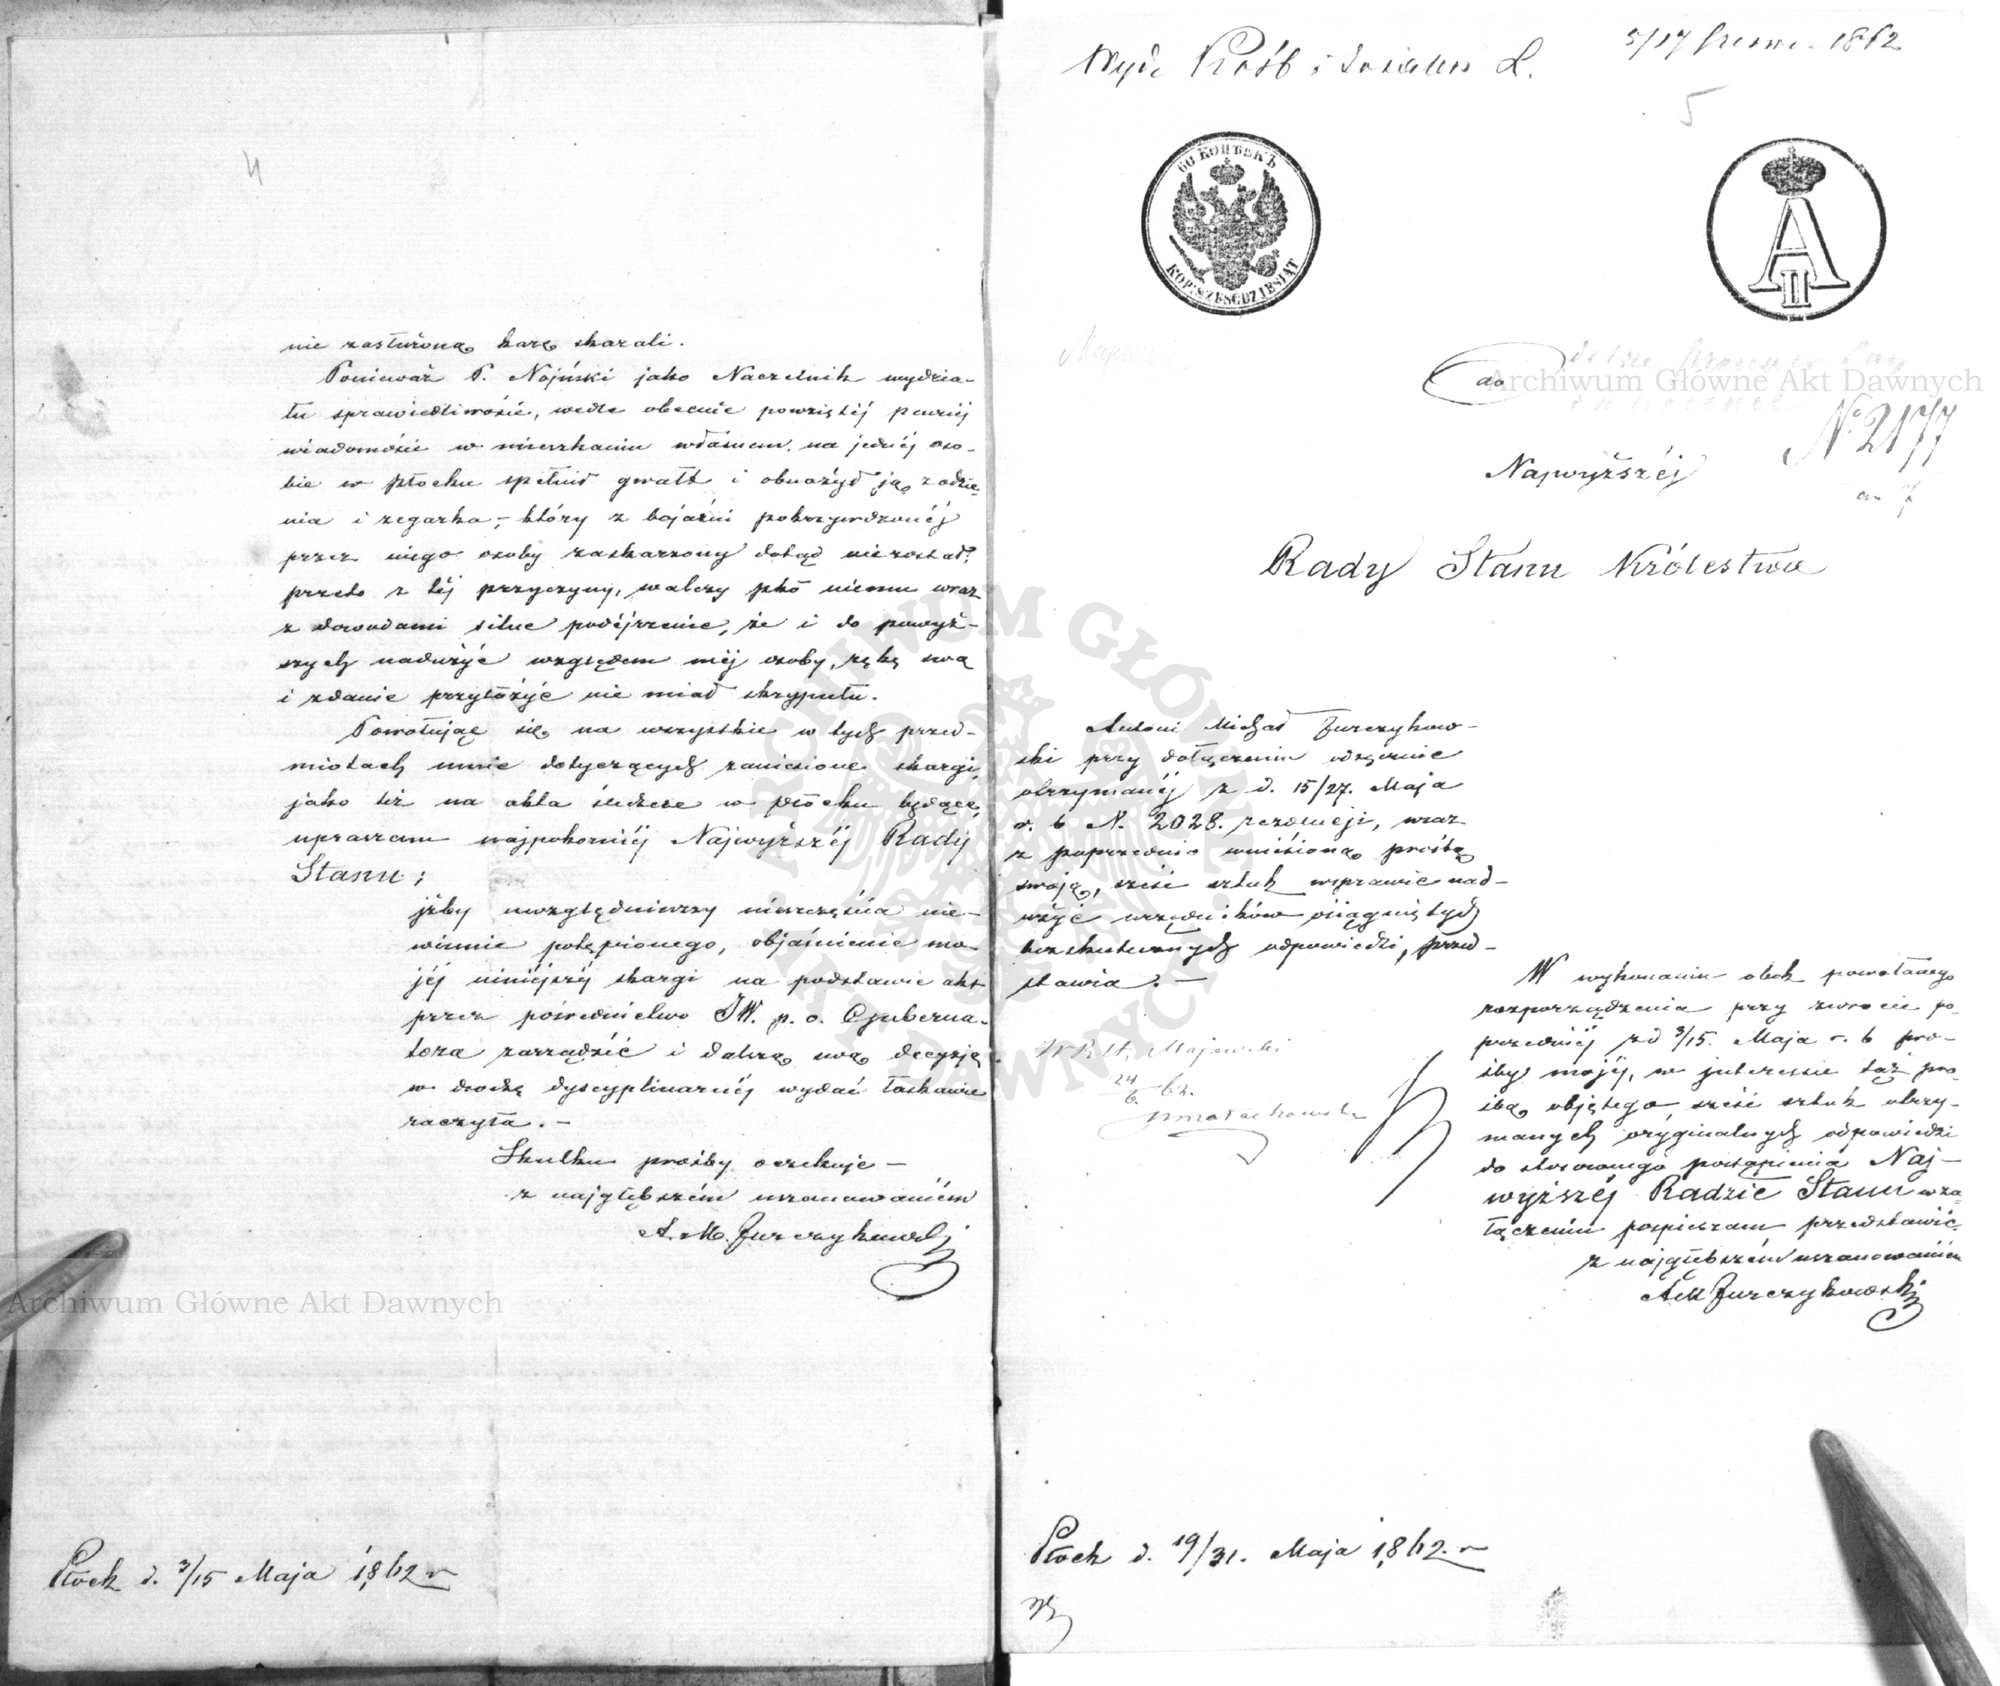 4
nie zasłużoną karę skazali.
Ponieważ P. Nojński jako Naczelnik wydzia-
łu sprawiedliwości, wedle obecnie powziętéj pewnéj
wiadomości w mieszkaniu własnem, na jednéj oso-
bie w Płocku spełnił gwałt i obnażył ją z odzie-
nia i zegarka, który z bojaźni pokrzywdzonéj
przez niego osoby zaskarzony dotąd nie został,
przeto z téj przyczyny, walczy pko niemu wraz
z dowodami silne podéjrzenie, że i do powyż-
szych nadużyć względem méj osoby, rękę swą
i zdanie przyłożyć nie miał skrypułu.
Powołując się na wszystkie w tych przed-
miotach mnie dotyczących zaniesione skargi,
jako też na akta śledcze w Płocku będące,
upraszam najpokorniéj Najwyższéj Rady
Stanu;
jżby uwzględniwszy nieszczęścia nie-
winnie potępionego, objaśnienie mo-
jéj niniéjszéj skargi na podstawie akt
przez pośrednictwo JW. p. o. Gubernа-
tora zarządzić i dalszą swą decyzją
w drodze dyscyplinarnéj wydać łaskawie
raczyła. –
Skutku prośby oczekuje –
z najgłębszém uszanowaniém
A. M. Jurczykowski
Płock d. 3/15 Maja 1862 r
Wydz Próśb i Zażaleń L.
5/17 Czerwc. 1862
5
60 КОПѢЕКЪ
KOP: SZESĆDZIESIĄT
A II
do
№ 2177
Najwyższéj
Rady Stanu Królestwa
Antoni Michał Jurczykow-
ski przy dołączeniu odręcznie
otrzymanéj z d. 15/27. Maja
r. b N. 2028. rezolucji, wraz
z poprzednio wniesioną prośbą
swoją, sześć sztuk w sprawie nad-
użyć urzędników osiągniętych
bezskutecznych odpowiedzi, przed-
stawia. –
W wykonaniu obok powołanego
rozporządzenia przy zwrocie po-
przedniéj z d 3/15. Maja r. b pro-
śby mojéj, w interessie tąż pro-
śbą objętego, sześć sztuk otrzy-
manych oryginalnych odpowiedzi
do stosownego postąpienia Naj-
wyższéj Radzie Stanu w za-
łączeniu pospieszam przedstawić,
z najgłębszém uszanowaniém
A M Jurczykowski
Majewski
24/6. 62.
Płock d. 19/31. Maja 1862. r
Archiwum Główne Akt Dawnych
Archiwum Główne Akt Dawnych
ARCHIWUM GŁÓWNE AKT DAWNYCH